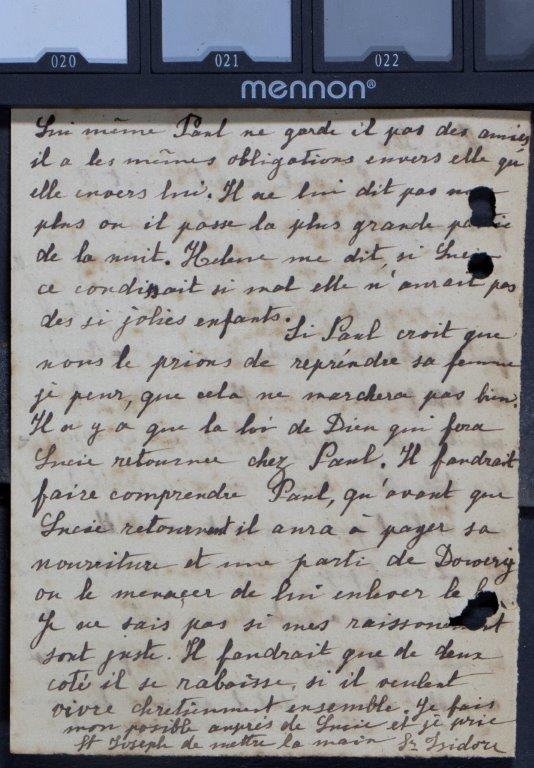 020 021 022
mennon®
Lui même Paul ne garde il pas des amies
il a les mêmes obligations envers elle qu'
elle envers lui. Il ne lui dit pas non
plus ou il passe la plus grande partie
de la nuit. Helene me dit, si Lucie
ce condisait si mal elle n'aurait pas
des si jolies enfants.
Si Paul croit que
nous le prions de reprendre sa femme
je peur, que cela ne marchera pas bien.
Il n y a que la loi de Dieu qui fera
Lucie retournee chez Paul. Il faudrait
faire comprendre Paul, qu'avant que
Lucie retournent il aura à payer sa
nourriture et une parti de Dowery
ou le menaçer de lui enlever le
Je ne sais pas si mes raissonement
sont juste. Il faudrait que de deux
coté il se rabaisse, si il veulent
vivre chretiennent ensemble. Je fais
mon posible auprès de Lucie et je prie
St Joseph de mettre la main Sr Isidore